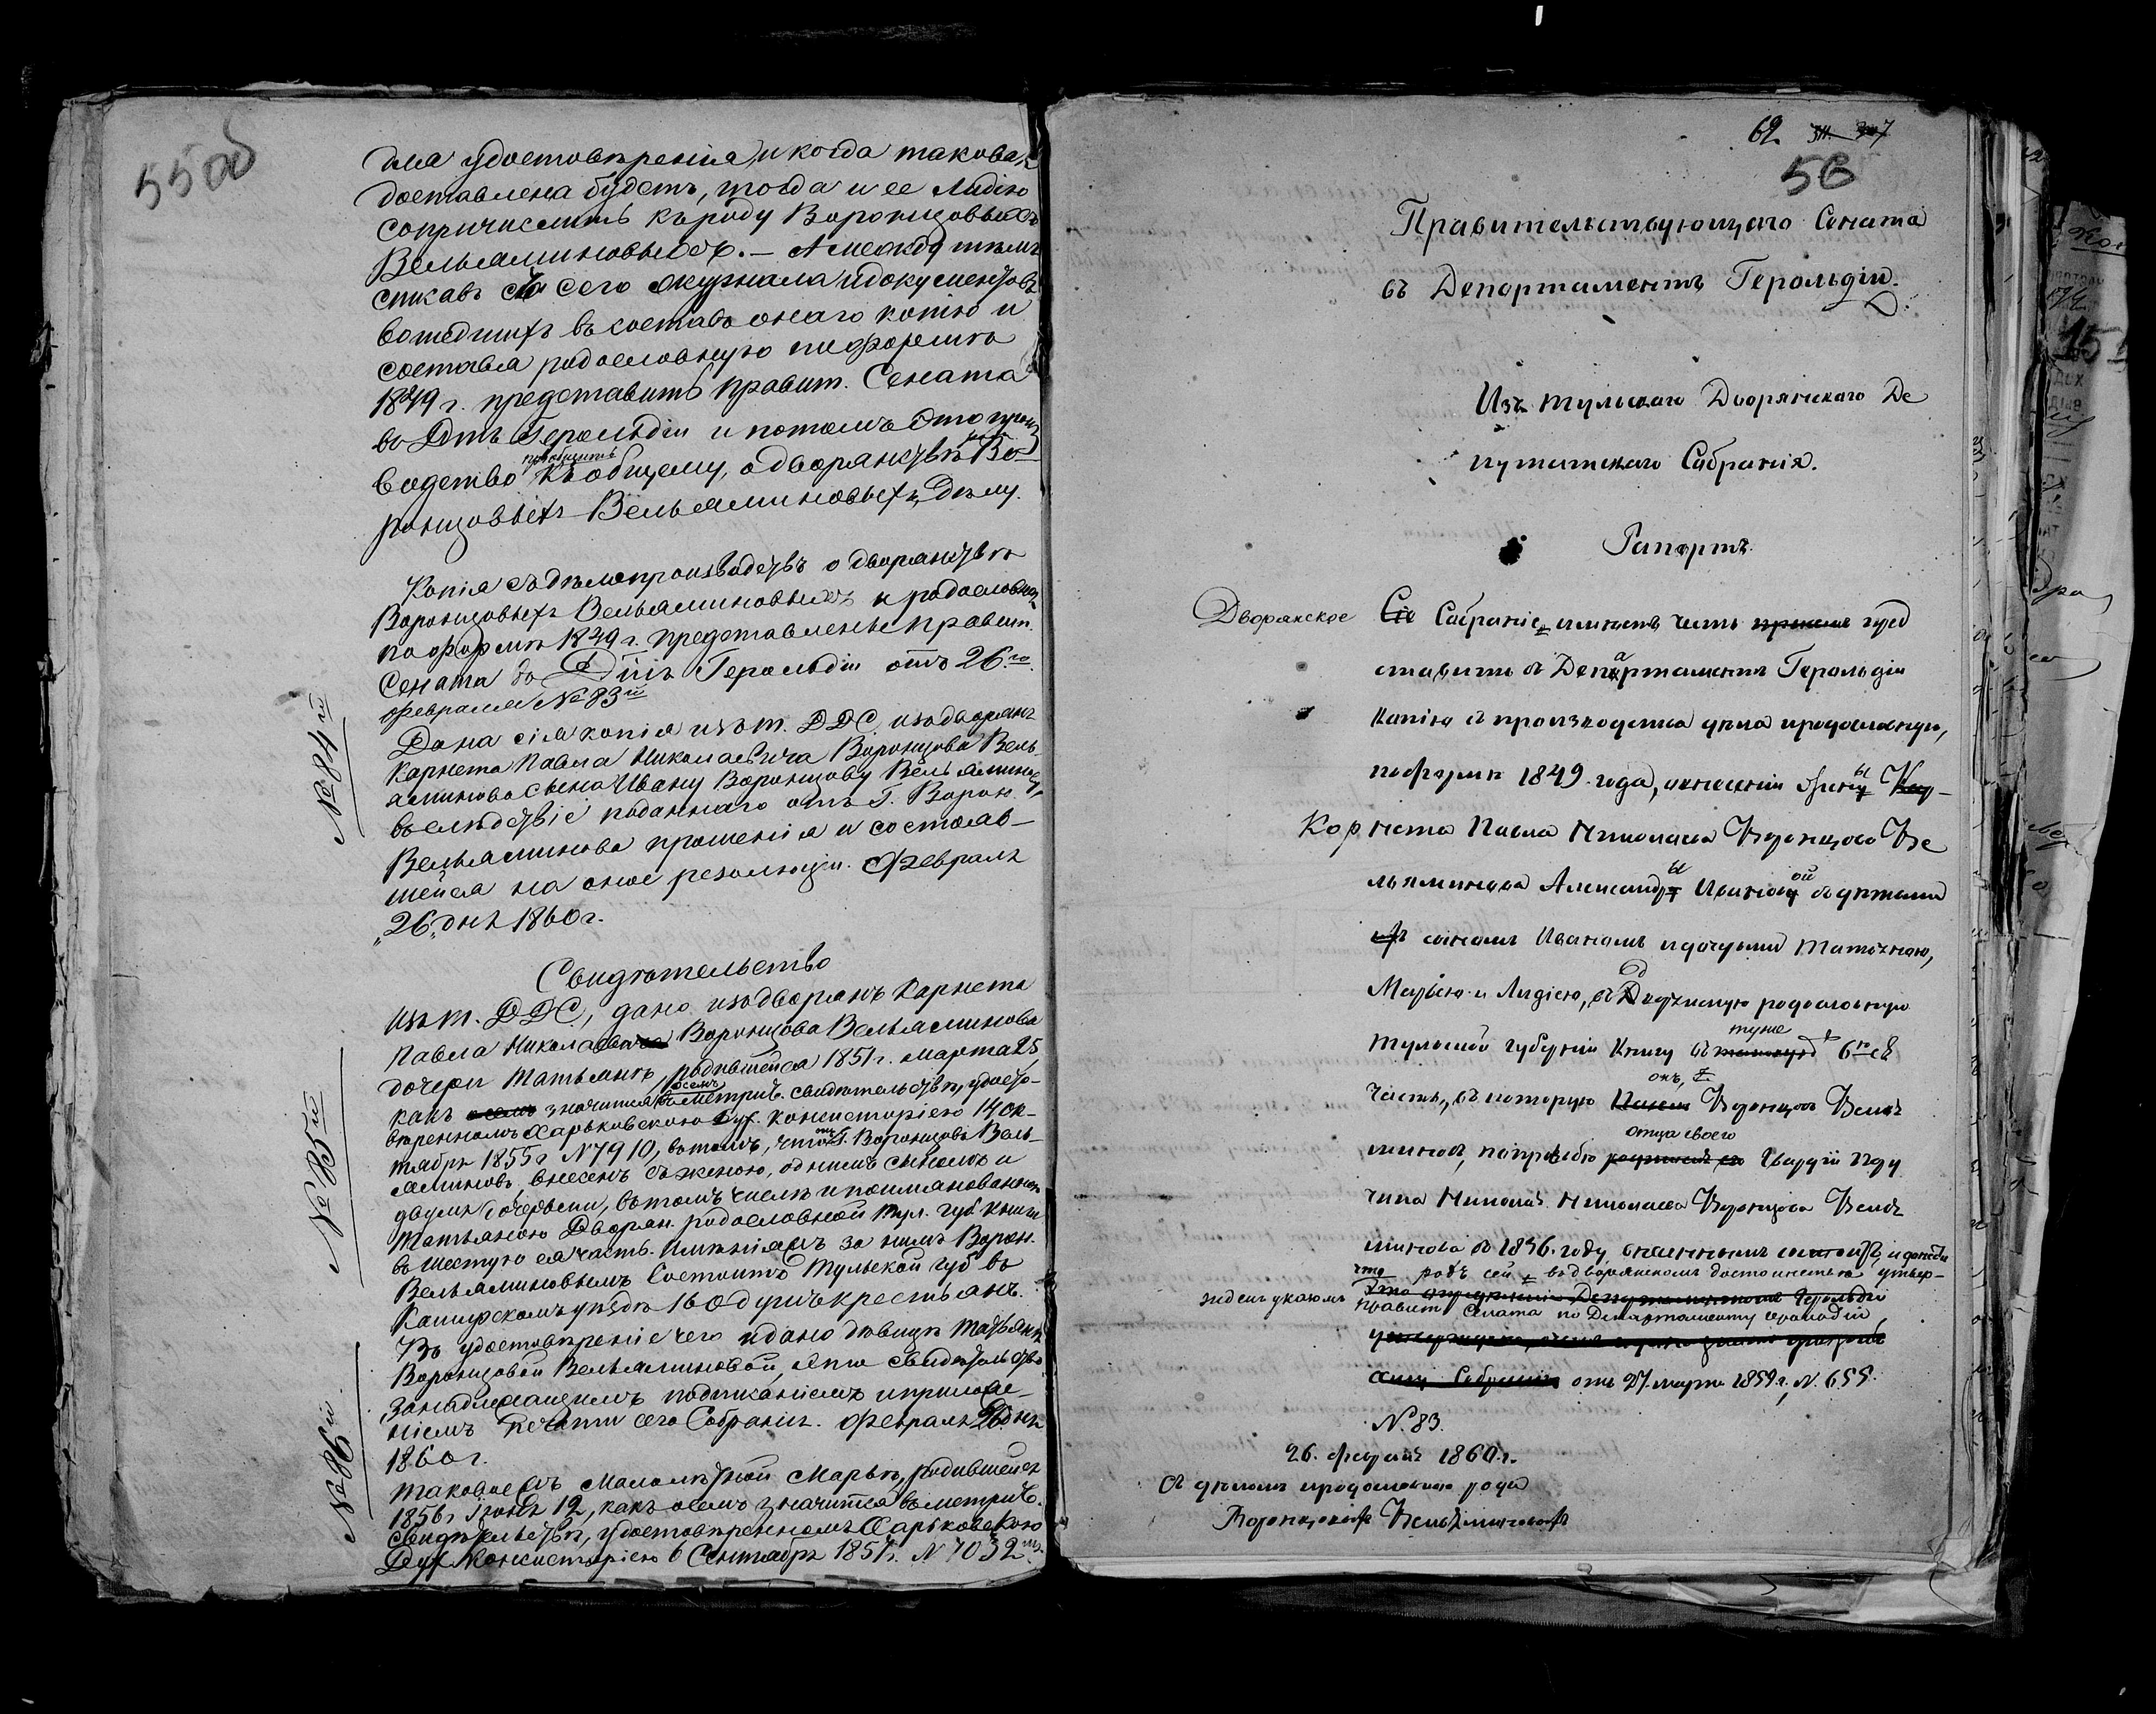 55 об
для удостовѣренія, и когда таковая
доставлена будетъ, тогда и ее Лидію
сопричислить къ роду Воронцовыхъ
Вельяминовыхъ. — А между тѣмъ
списавъ съ сего журнала и документовъ
вошедшихъ въ составъ онаго копію и
составя родословную по формѣ
1849 г. представить Правит. Сената
въ Дтъ Герольдіи и потомъ это произ
водство пріобщить къ общему, о дворянствѣ рода Во-
ронцовыхъ Вельяминовыхъ, дѣлу.
Копія съ дѣлопроизводствъ о дворянствѣ
Воронцовыхъ Вельяминовыхъ и родословная
по формѣ 1849 г. представлены Правит.
Сената въ Дтъ Герольдіи отъ 26.го
февраля № 83й
№ 84й
Дана сія копія изъ Т. Д.Д.С. изъ дворянъ
Корнета Павла Николаевича Воронцова Вель-
яминова сыну Ивану Воронцову Вельяминову,
въ слѣдствіе поданнаго отъ Г. Ворон.
Вельяминова прошенія и состояв-
шейся на оное резолюціи. Февраля
„26„ дня 1860 г.
Свидѣтельство
№ 85й
Изъ Т. Д.Д.С., дано изъ дворянъ Корнета
Павла Николаевича Воронцова Вельяминова
дочери Татьянѣ, родившейся 1851 г. Марта 25,
какъ о семъ значится въ метрич. свидѣтельствѣ, удосто-
вѣренномъ Харьковскою Дух. Консисторіею 14 Ок-
тября 1855 г. N 7910, въ томъ, что отецъ Г. Воронцовъ Вель-
яминовъ, внесенъ съ женою, однимъ сыномъ и
двумя дочерьми, въ томъ числѣ и поименованною
Татьяною Дворян. родословной Тул. губ. книги
въ шестую ея часть. Имѣнія съ за нимъ Ворон.
Вельяминовымъ состоитъ Тульской губ. въ
Каширскомъ уѣздѣ 160 душъ крестьянъ.
Въ удостовѣреніе чего и дано дѣвицѣ Татьянѣ
Воронцовой Вельяминовой, это свидѣтельство
за надлежащимъ подписаніемъ и приложе-
ніемъ печати сего Собранія. Февраля 26 дня
1860 г.
№ 86й
Таковое съ малолѣтной Марьѣ, родившейся
1856 г. Іюня 12, какъ о семъ значится въ метрич.
свидѣтельствѣ, удостовѣренномъ Харьковскою
Дух. Консисторіею 6 Сентября 1857 г. N 7032
62
56
Правительствующаго Сената
въ Департаментъ Герольдіи.
Изъ Тульскаго Дворянскаго Де
путатскаго Собранія.
Рапортъ.
Дворянское Сіе Собраніе, имѣетъ честь пред
ставить въ Департаментъ Герольдіи
копію съ производства дѣла и родословную,
по формѣ 1849 года, о внесеніи жены
Корнета Павла Николаева Воронцова Ве
льяминова Александры Ивановой съ дѣтьми
сыномъ Иваномъ и дочерьми Татьяною,
Марьею и Лидіею, въ Дворянскую родословную
Тульской губерніи книгу въ туже 6ю ея
часть, въ которую онъ, Воронцовъ Велья
миновъ, по просьбѣ отца своего Гвардіи Пору
чика Николая Николаева Воронцова Велья
минова въ 1836 году внесенъ и донести
что родъ сей въ дворянскомъ достоинствѣ утвер-
жденъ указомъ
Правит. Сената по Департаменту Герольдіи,
отъ 27 марта 1859 г., N. 655.
N. 83.
26. февраля 1860 г.
Съ дѣломъ и родословною рода
Воронцовыхъ Вельяминовыхъ